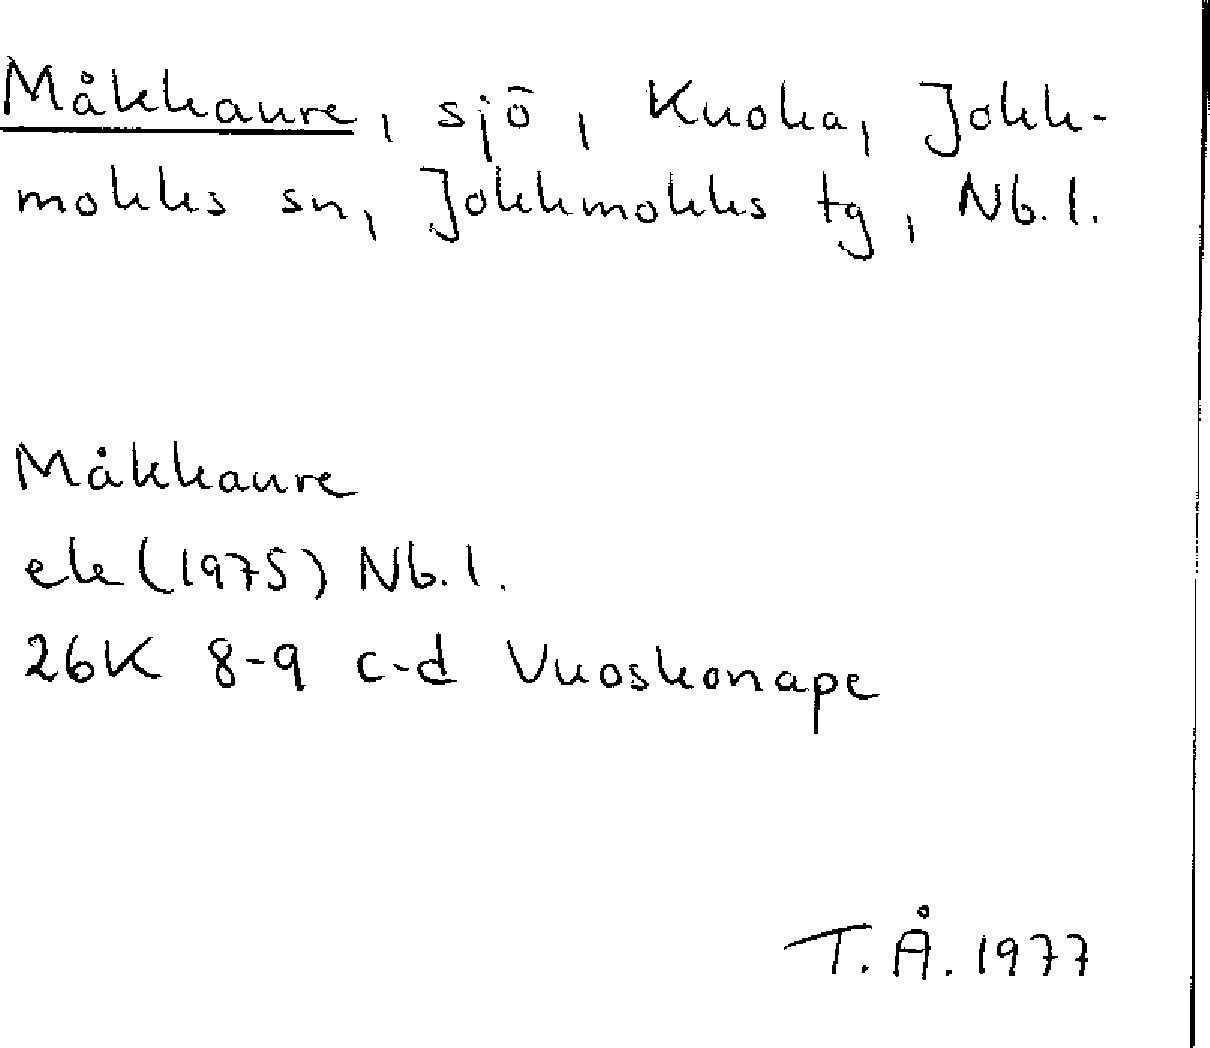 Måkkaure, sjö, Kuoka, Jokk-
mokks sn, Jokkmokks tg, Nb.l.
Måkkaure
ek (1975) Nb.l.
26K 8-9 c-d Vuoskonape
T.Å. 1977